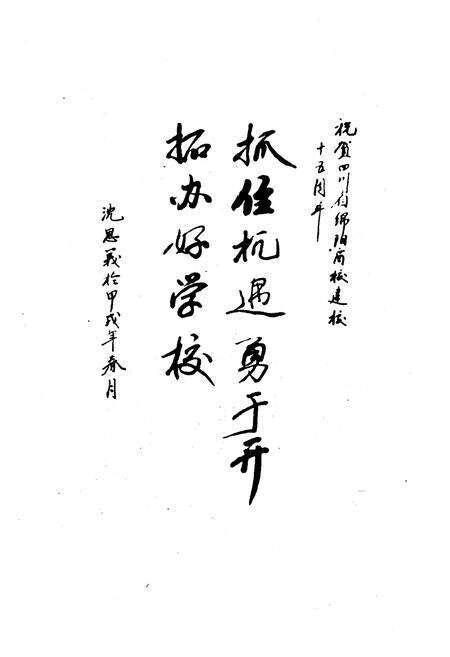 祝贺四川省绵阳商校建校
十五周年
抓住机遇勇于开
拓办好学校
沈思義於甲戌年春月